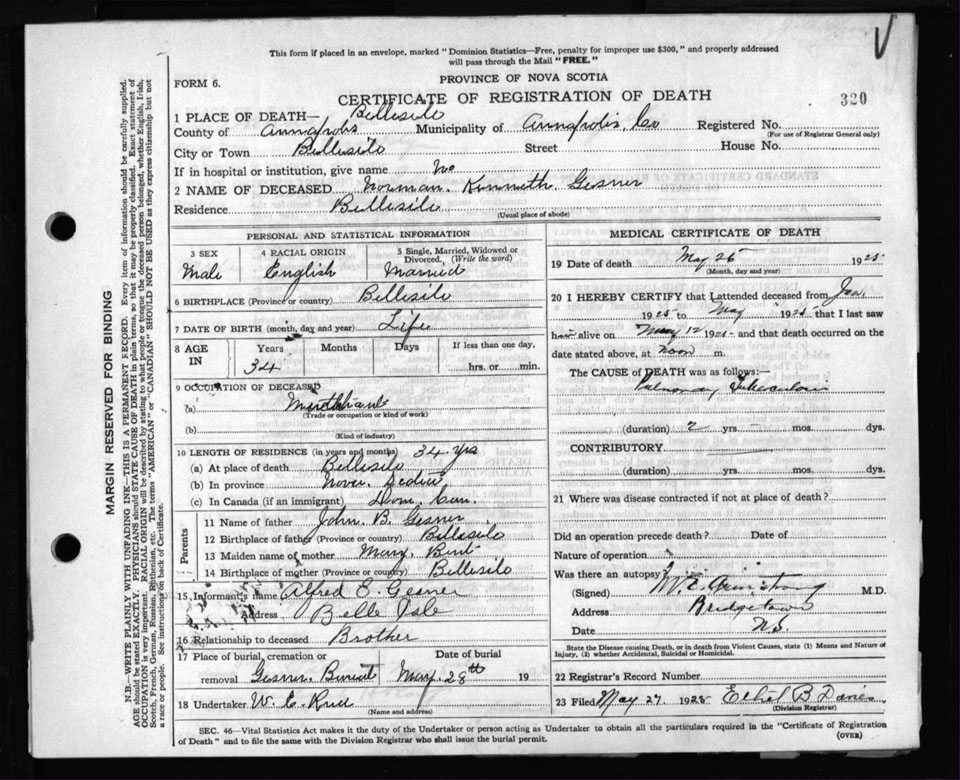 This form if placed in an envelope, marked "Dominion Statistics—Free, penalty for improper use $300," and properly addressed
will pass through the Mail "FREE."
FORM 6.
PROVINCE OF NOVA SCOTIA
CERTIFICATE OF REGISTRATION OF DEATH
320
1 PLACE OF DEATH— Bellisile
County of Annapolis Municipality of Annapolis, Co Registered No.
(For use of Registrar General only)
City or Town Bellisile Street House No.
If in hospital or institution, give name No
2 NAME OF DECEASED Norman. Kenneth. Gesner
Residence Bellisile
(Usual place of abode)
PERSONAL AND STATISTICAL INFORMATION
3 SEX Male
4 RACIAL ORIGIN English
5 Single, Married, Widowed or Divorced. (Write the word) Married
6 BIRTHPLACE (Province or country) Bellisile
7 DATE OF BIRTH (month, day and year) Life
8 AGE IN Years Months Days If less than one day,
34 hrs. or min.
9 OCCUPATION OF DECEASED
(a) Merchant
(Trade or occupation or kind of work)
(b)
(Kind of industry)
10 LENGTH OF RESIDENCE (in years and months) 34 yrs
(a) At place of death Bellisile
(b) In province Nova. Scotia
(c) In Canada (if an immigrant) Dom. Can.
Parents
11 Name of father John. B. Gesner
12 Birthplace of father (Province or country) Bellisile
13 Maiden name of mother Mary. Bent
14 Birthplace of mother (Province or country) Bellisile
15 Informant's name Alfred E. Gesner
Address Belle Isle
16 Relationship to deceased Brother
17 Place of burial, cremation or removal Gesner. Date of burial May. 28th 19
18 Undertaker W. E.
(Name and address)
MEDICAL CERTIFICATE OF DEATH
19 Date of death May 25 1925
(Month, day and year)
20 I HEREBY CERTIFY that I attended deceased from Jan,
1925 to May 1925 that I last saw
alive on May 12 1925 and that death occurred on
date stated above, at noon m.
The CAUSE of DEATH was as follows:—
Pulmonary Tuberculosis
(duration) 2 yrs. mos. dys.
CONTRIBUTORY
(duration) yrs. mos. dys.
21 Where was disease contracted if not at place of death?
Did an operation precede death? Date of
Nature of operation
Was there an autopsy?
(Signed) Armstrong M.D.
Address Bridgetown
Date N.S.
State the Disease causing Death, or in death from Violent Causes, state (1) Means and Nature of
Injury, (2) whether Accidental, Suicidal or Homicidal.
22 Registrar's Record Number
23 Filed May 27 1925 Ethel B Davis
(Division Registrar)
SEC. 46—Vital Statistics Act makes it the duty of the Undertaker or person acting as Undertaker to obtain all the particulars required in the "Certificate of Registration
of Death" and to file the same with the Division Registrar who shall issue the burial permit.
(OVER)
MARGIN RESERVED FOR BINDING
N.B.—WRITE PLAINLY WITH UNFADING INK—THIS IS A PERMANENT RECORD. Every item of information should be carefully supplied.
AGE should be stated EXACTLY. PHYSICIANS should STATE CAUSE OF DEATH in plain terms, so that it may be properly classified. Exact statement of
OCCUPATION is very important. RACIAL ORIGIN will be described by stating to what people or tongue the deceased person belonged, whether English, Irish,
Scotch, French, German, Russian, Ruthenian, etc. The terms "AMERICAN" or "CANADIAN" SHOULD NOT BE USED as they express citizenship but not
a race or people. See instructions on back of Certificate.